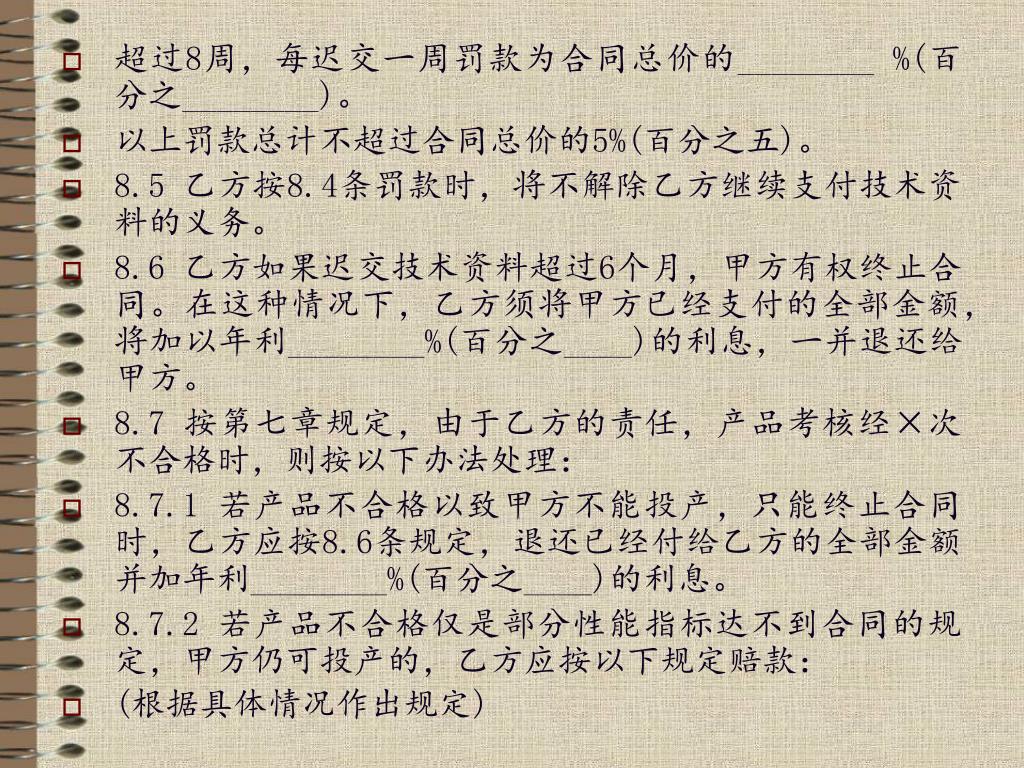 超过8周，每迟交一周罚款为合同总价的________ %(百
分之________)。
以上罚款总计不超过合同总价的5%(百分之五)。
8.5 乙方按8.4条罚款时，将不解除乙方继续支付技术资
料的义务。
8.6 乙方如果迟交技术资料超过6个月，甲方有权终止合
同。在这种情况下，乙方须将甲方已经支付的全部金额，
将加以年利________%(百分之____)的利息，一并退还给
甲方。
8.7 按第七章规定，由于乙方的责任，产品考核经×次
不合格时，则按以下办法处理：
8.7.1 若产品不合格以致甲方不能投产，只能终止合同
时，乙方应按8.6条规定，退还已经付给乙方的全部金额
并加年利________%(百分之____)的利息。
8.7.2 若产品不合格仅是部分性能指标达不到合同的规
定，甲方仍可投产的，乙方应按以下规定赔款：
(根据具体情况作出规定)